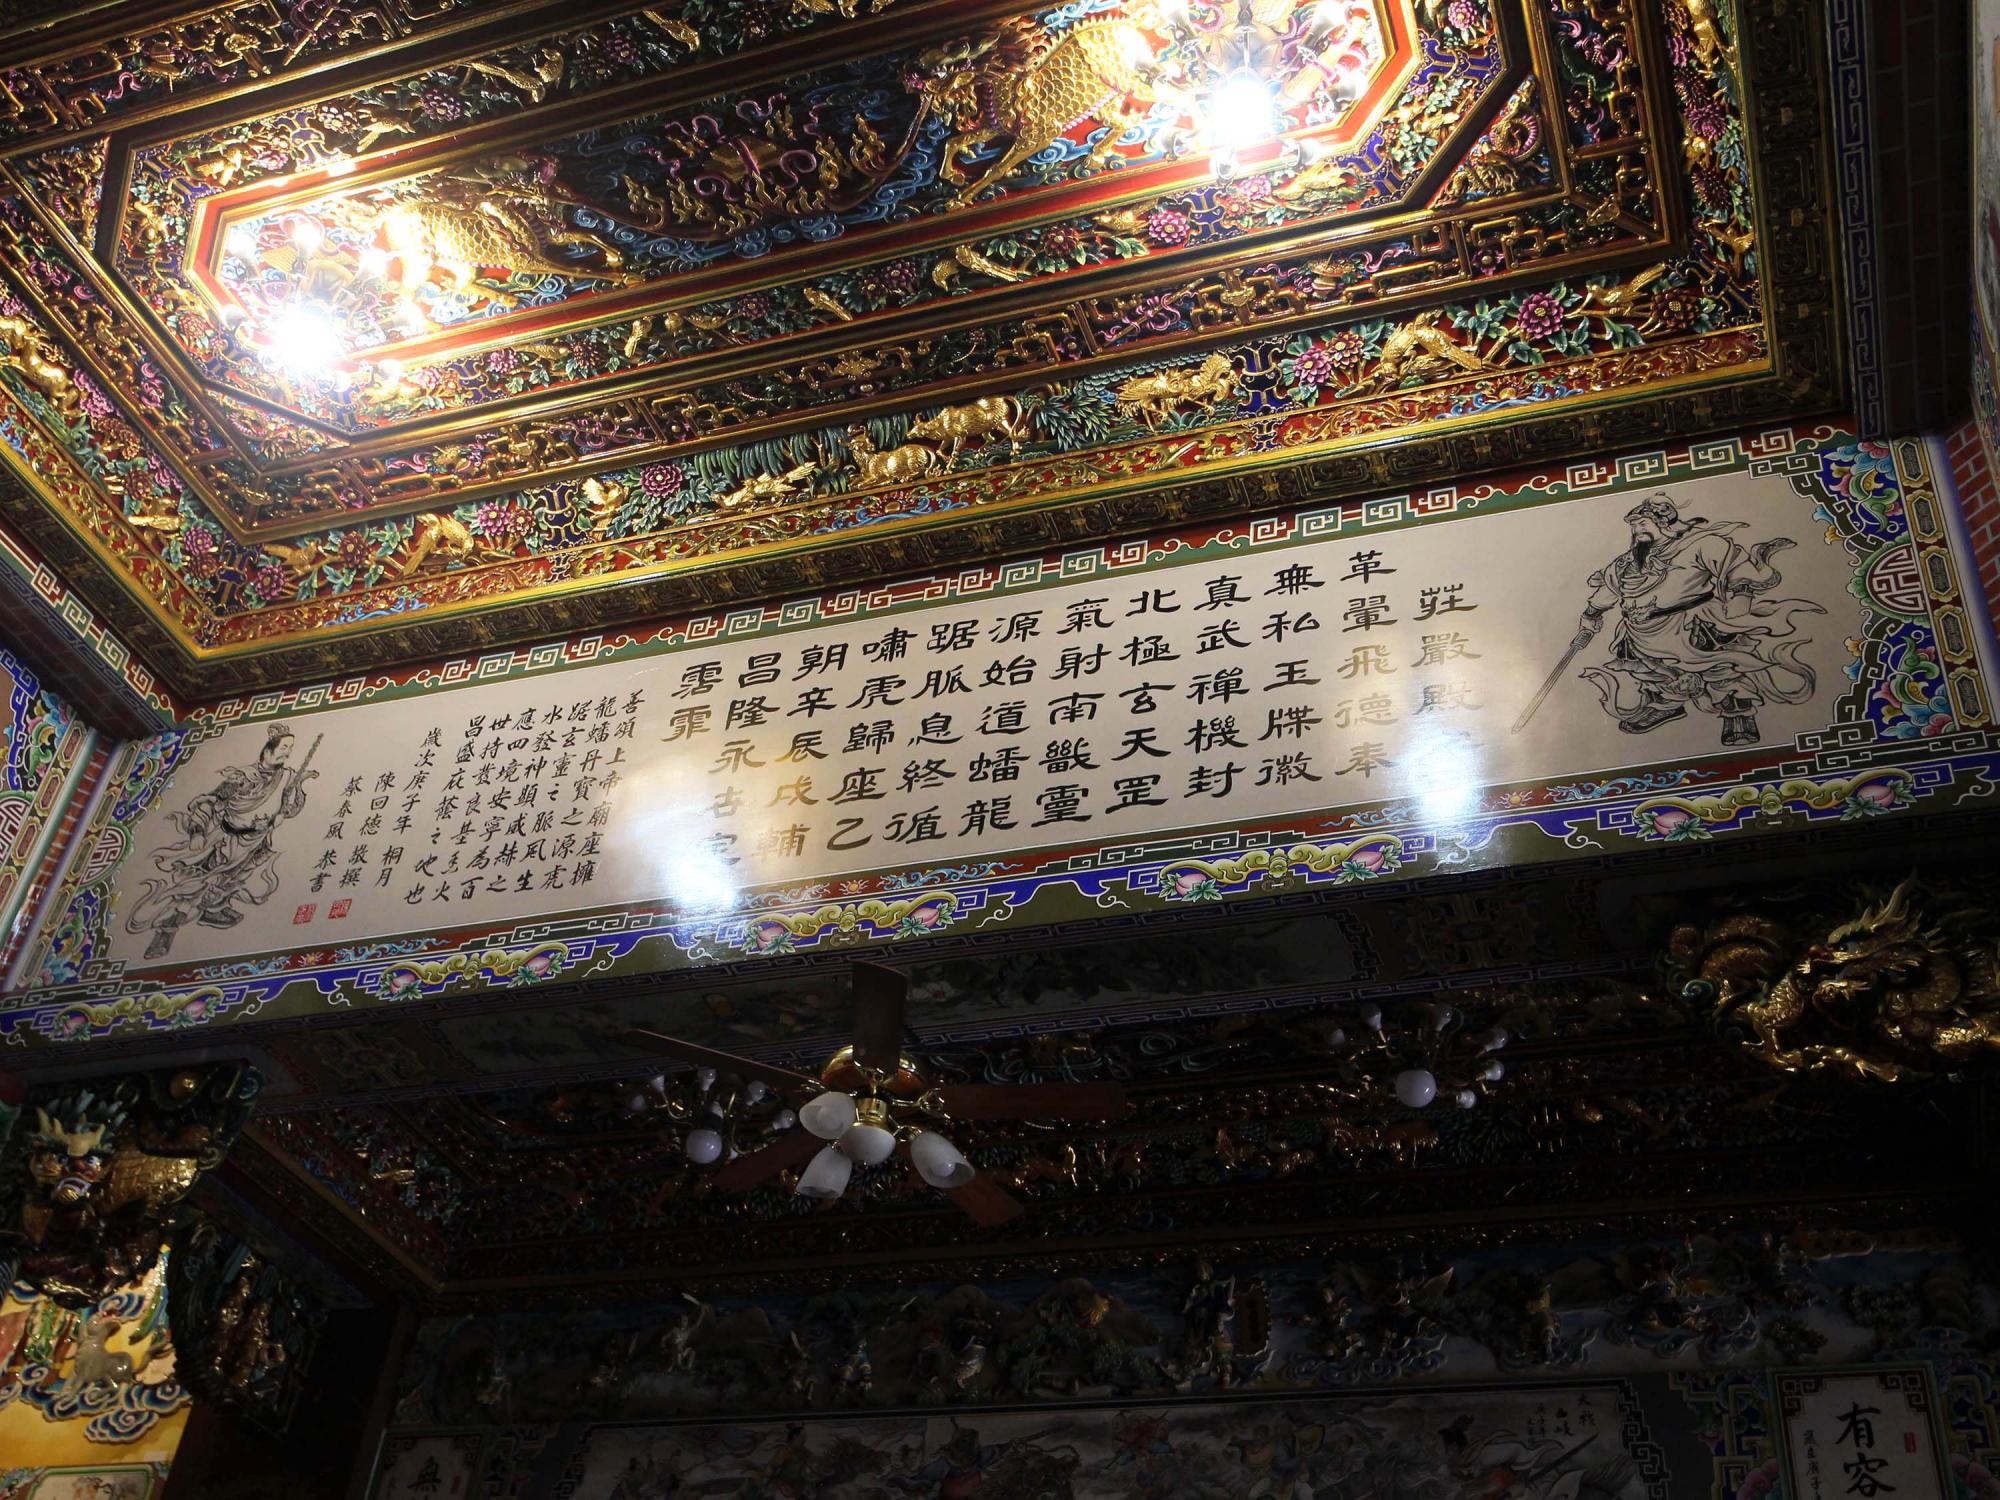 莊嚴殿
革翬飛德奉
無私玉牒徽
真武禪機封
北極玄天罡
氣射南巤靈
源始道蟠龍
踞脈息終循
嘯虎歸座乙
朝辛辰戌輔
昌隆永古定
霑霏
善頌上帝廟座擁
龍蟠丹寶之源虎
踞玄靈之脈風生
水發神顯威赫之
應四境安寧為百
世持發良基
昌盛庇蔭之地也
歲次庚子年 桐月
陳回德 敬撰
蔡春風 恭書
有容
大戰
無